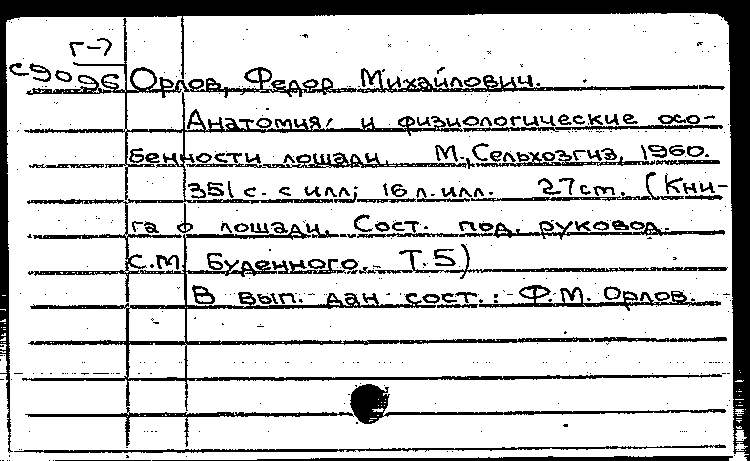 Г-7
с90 96 Орлов, Федор Михайлович.
Анатомия и физиологические осо-
бенности лошади. М., Сельхозгиз, 1960.
351 с. с илл; 16 л. илл. 27 cm. (Кни-
га о лошади. Сост. под. руковод.
С.М. Буденного. Т.5)
В вып. дан сост.: Ф.М. Орлов.